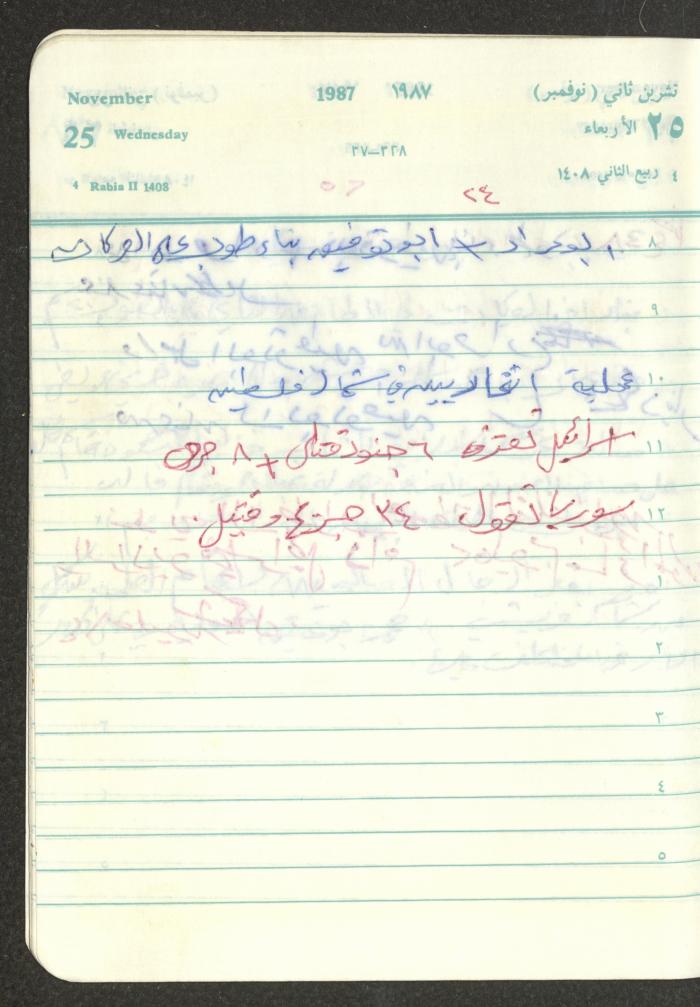 November 1987 ١٩٨٧ تشرين ثاني ( نوفمبر )
25 Wednesday ٢٥ الأربعاء
٣٢٨—٣٧
4 Rabia II 1408 ٤ ربيع الثاني ١٤٠٨
٢٤
٨ ابو توفيق بناء طوب على
٩
١٠ عملية شمال فلسطين
١١ اسرائيل تعترف ٦ جنود قتلى + ٨ جرحى
١٢ سوريا تقول ٣٤ جريح وقتيل.
١
٢
٣
٤
٥